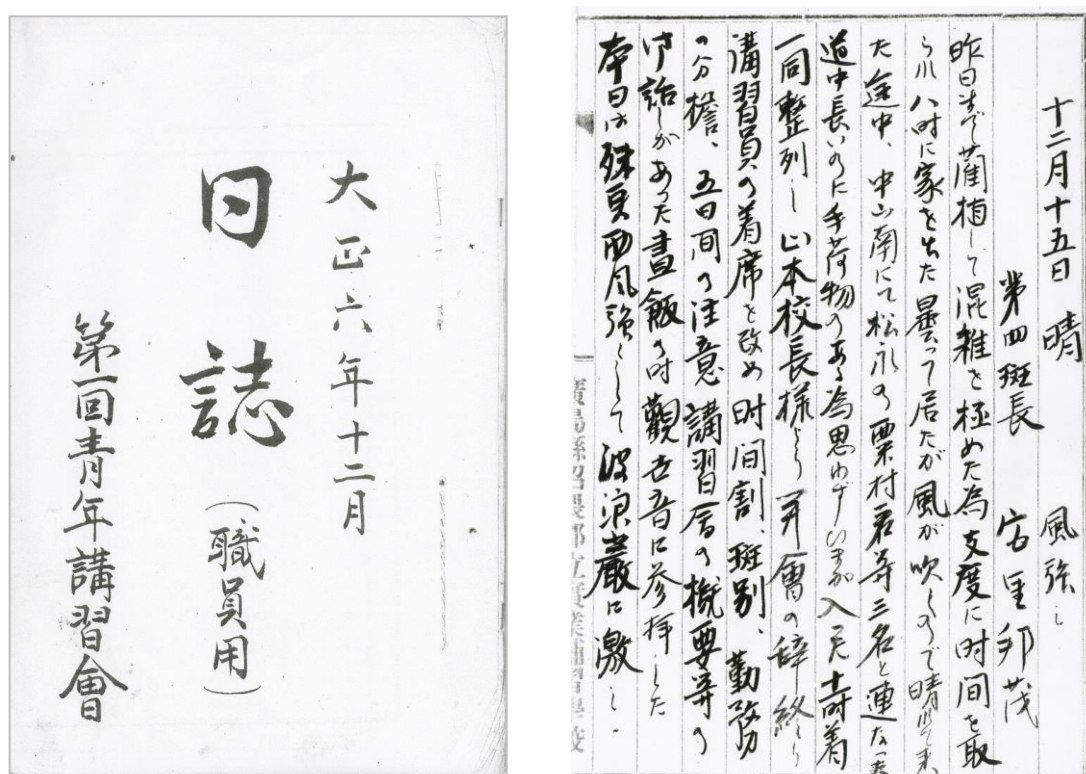 大正六年十二月
日誌
(職員用)
第一回青年講習會
十二月十五日 晴 風強し
第四班長 邦茂
昨日まで藺植して混雑を極めた為支度に时间を取
ら川八时に家を出た曇って居たが風が吹くので晴れて来
た途中、中山南にて松永の栗村君等三名と連なった
道中長いのに手荷物のある為思わず 入 着
一同整列し山本校長様より 會の辞終り
講習員の着席を改め时间割、班別、勤務
の分檐、五日间の注意講習會の概要等の
御話しがあった晝飯の时觀世音に参拝した
本日は殊更西风強くして波浪巌に激し
廣島縣沼隈郡立實業補習學校